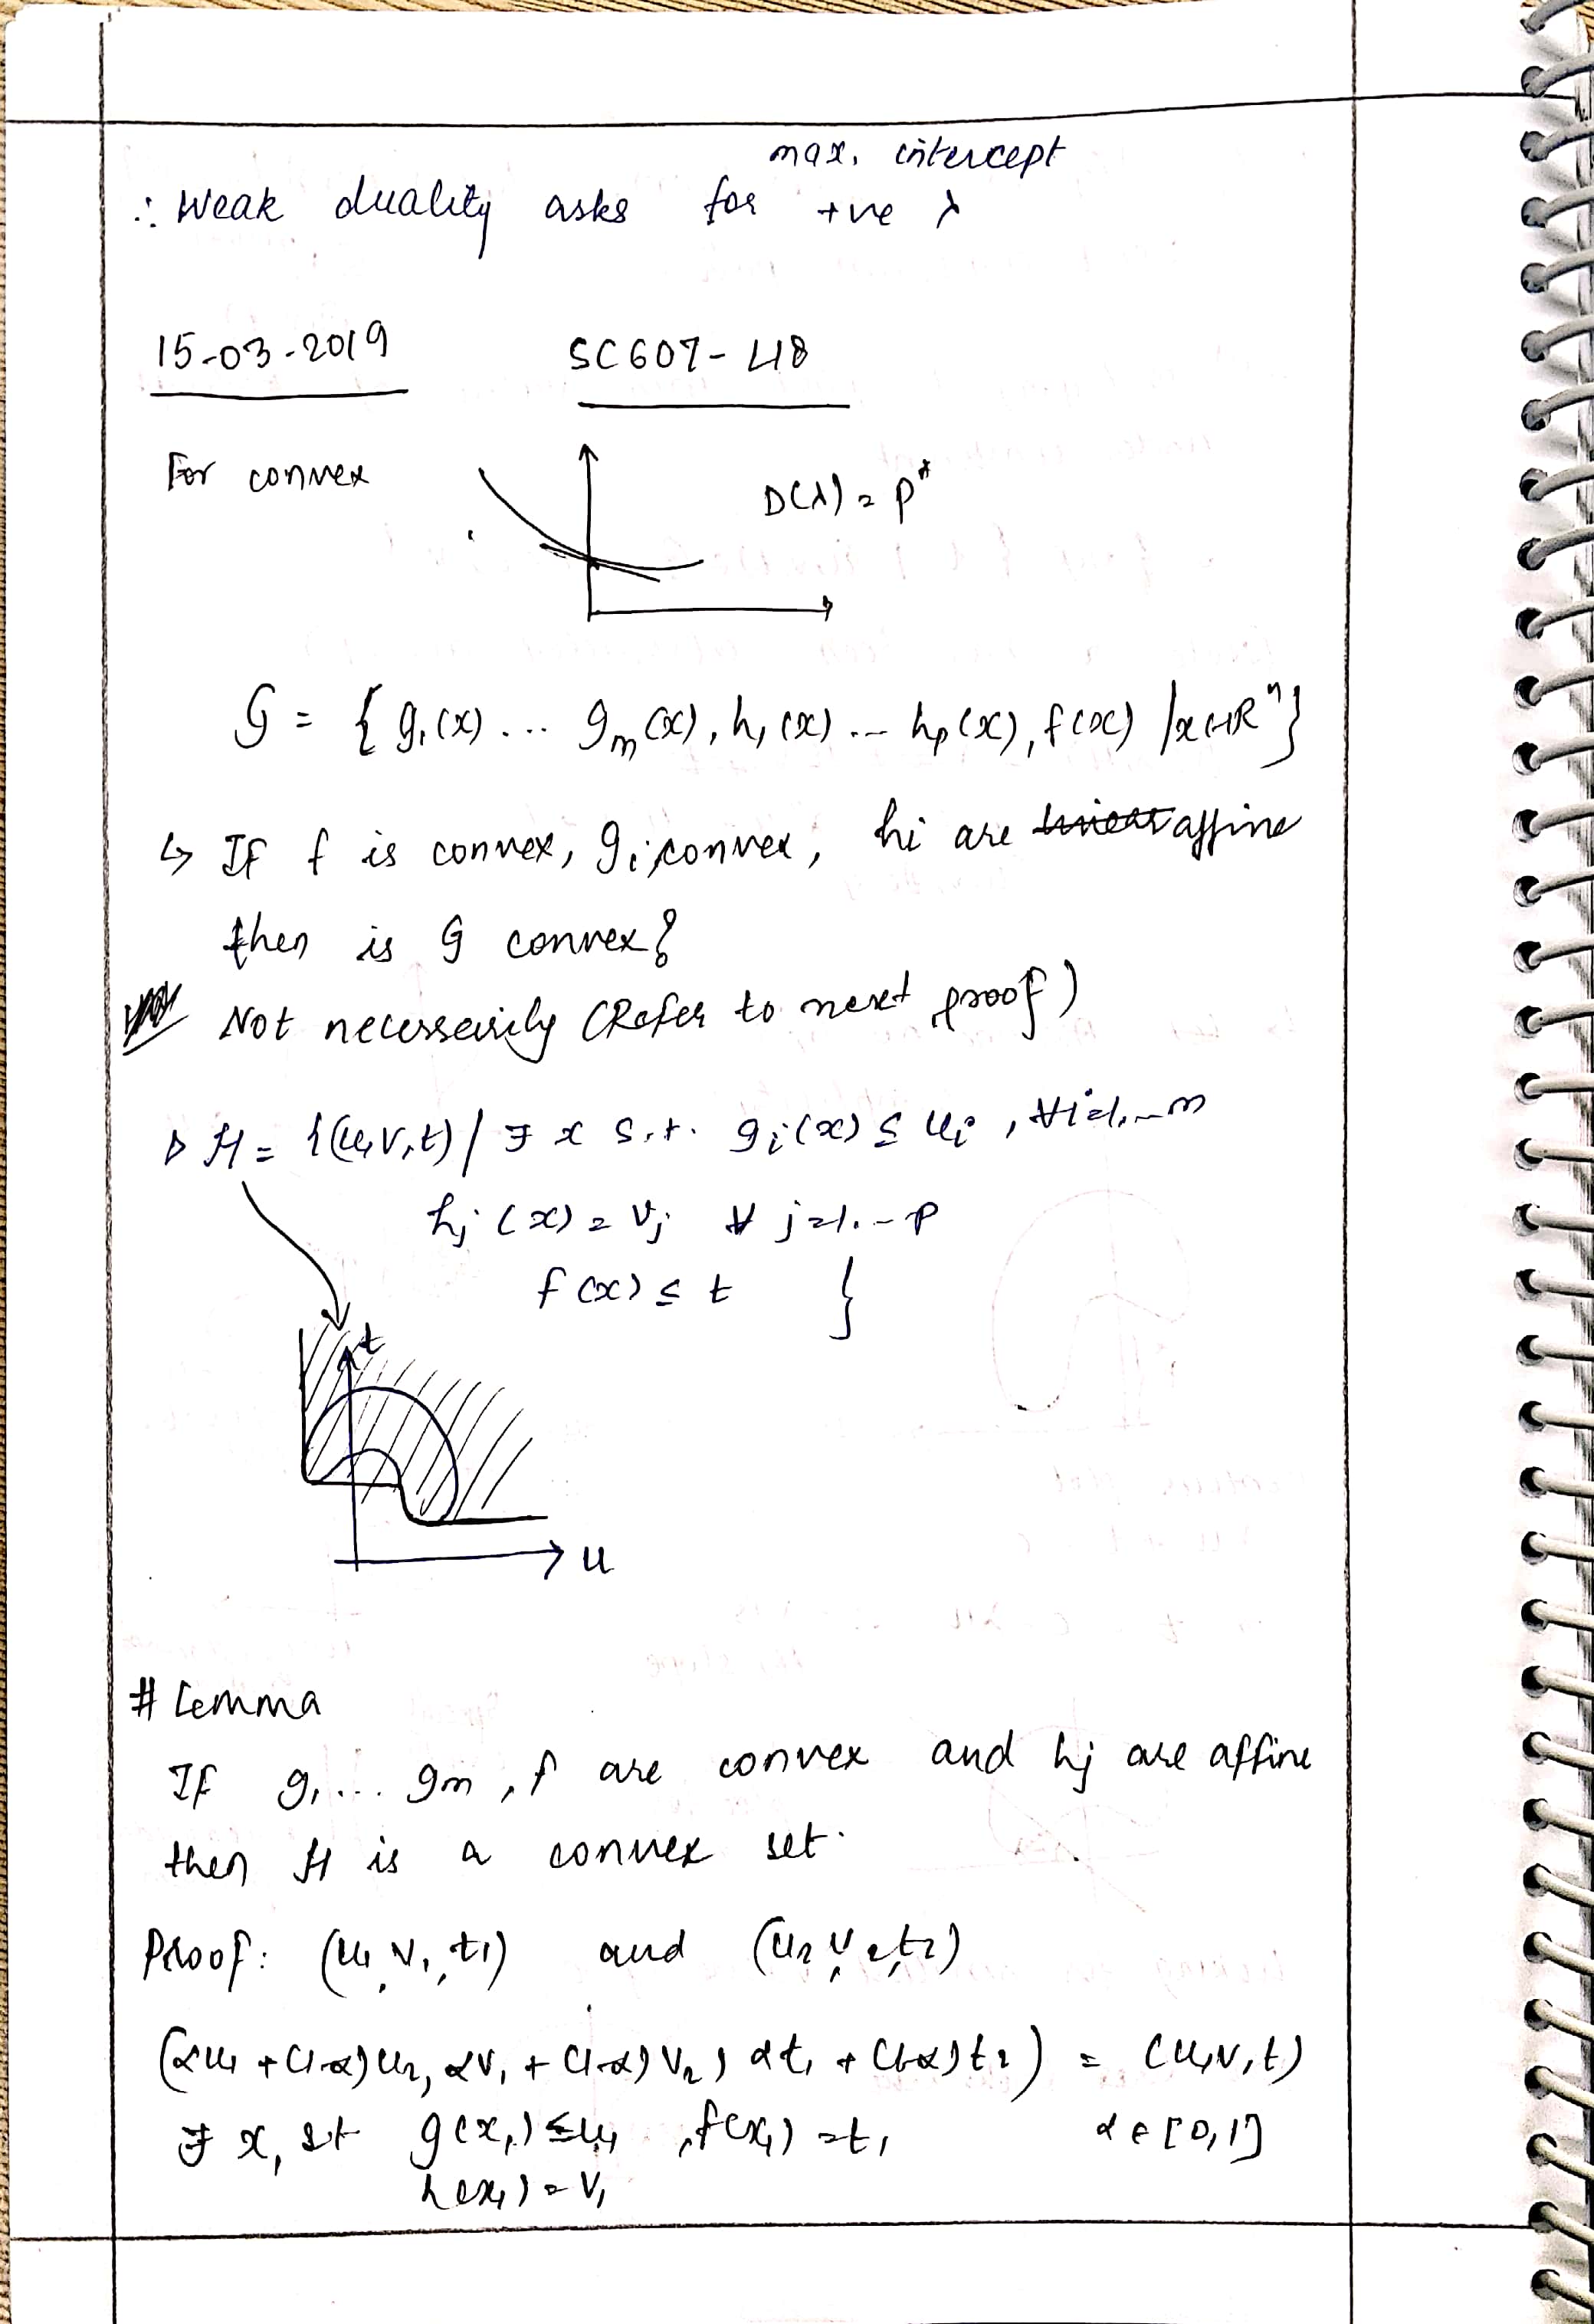 max. intercept
∴ Weak duality asks for +ve λ
15-03-2019 SC607-L18
For convex
D(λ) = p*
G = { g₁(x) ... gₘ(x), h₁(x) ... hₚ(x), f(x) / x∈ℝⁿ}
↳ If f is convex, gᵢ convex, hi are linear affine
then is G convex?
Not necessarily (Refer to next proof)
▷ H = {(u,v,t) / ∃ x s.t. gᵢ(x) ≤ uᵢ , ∀ i=1,..m
hⱼ(x) = vⱼ ∀ j=1..p
f(x) ≤ t }
t
u
# Lemma
If g₁... gm , f are convex and hj are affine
then H is a convex set.
Proof: (u₁, v₁, t₁) and (u₂, v₂, t₂)
(αu₁ + (1-α)u₂, αv₁ + (1-α)v₂, αt₁ + (1-α)t₂) = (u,v,t)
∃ x₁ st g(x₁) ≤ u₁ , f(x₁) = t₁ α ∈ [0,1]
h(x₁) = v₁